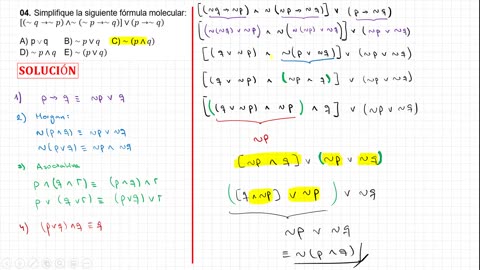 04. Simplifique la siguiente fórmula molecular:
[(~ q → ~ p) ∧ ~ (~ p → ~ q)] ∨ (p → ~ q)
A) p ∨ q B) ~ p ∨ q C) ~ (p ∧ q)
D) ~ p ∧ q E) ~ (p ∨ q)
SOLUCIÓN
1) p → q ≡ ~p ∨ q
2) Morgan:
~(p ∧ q) ≡ ~p ∨ ~q
~(p ∨ q) ≡ ~p ∧ ~q
3) Asociativa
p ∧ (q ∧ r) ≡ (p ∧ q) ∧ r
p ∨ (q ∨ r) ≡ (p ∨ q) ∨ r
4) (p ∨ q) ∧ q ≡ q
[(~q → ~p) ∧ ~(~p → ~q)] ∨ (p → ~q)
[(~(~q) ∨ ~p) ∧ ~(~(~p) ∨ ~q)] ∨ (~p ∨ ~q)
[(q ∨ ~p) ∧ ~(p ∨ ~q)] ∨ (~p ∨ ~q)
[(q ∨ ~p) ∧ (~p ∧ q)] ∨ (~p ∨ ~q)
[((q ∨ ~p) ∧ ~p) ∧ q] ∨ (~p ∨ ~q)
~p
[~p ∧ q] ∨ (~p ∨ ~q)
([q ∧ ~p] ∨ ~p) ∨ ~q
~p ∨ ~q
≡ ~(p ∧ q)